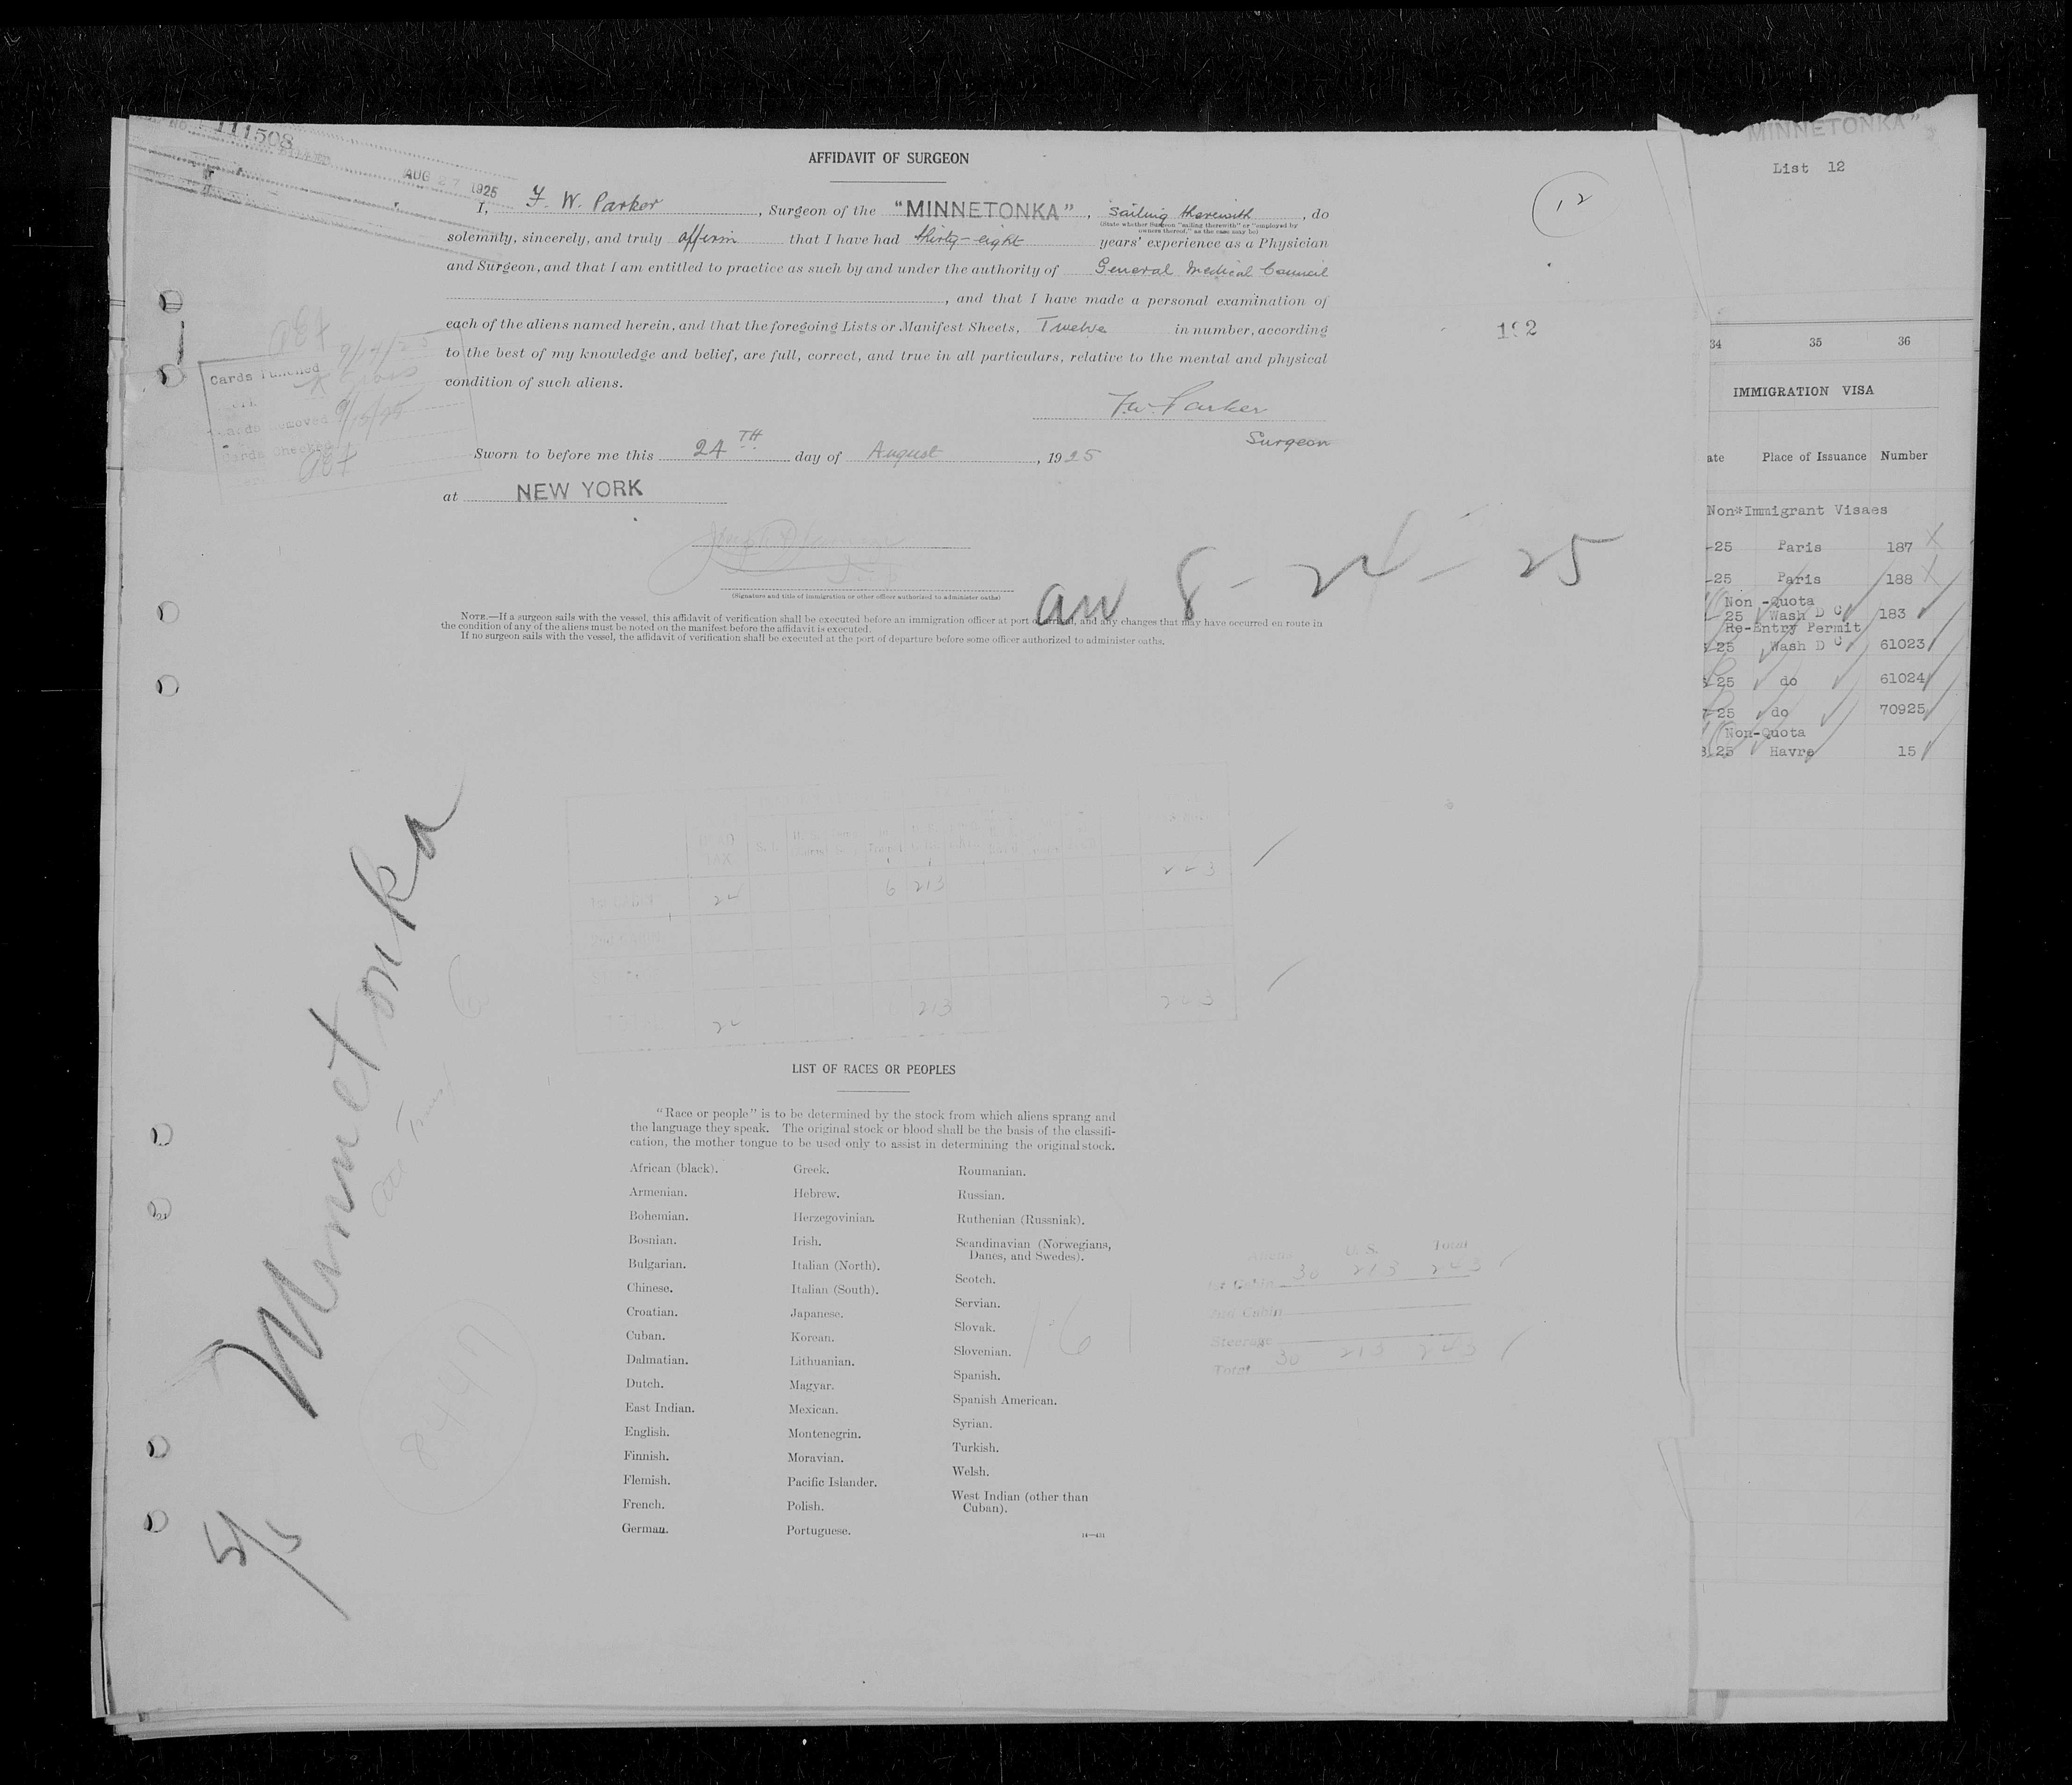 111508
AUG 27 1925
AFFIDAVIT OF SURGEON
12
I, F. W. Parker, Surgeon of the "MINNETONKA", Sailing therewith, do
(State whether Surgeon "sailing therewith" or "employed by
owners thereof," as the case may be)
solemnly, sincerely, and truly affirm that I have had thirty-eight years' experience as a Physician
and Surgeon, and that I am entitled to practice as such by and under the authority of General Medical Council
, and that I have made a personal examination of
each of the aliens named herein, and that the foregoing Lists or Manifest Sheets, Twelve in number, according
to the best of my knowledge and belief, are full, correct, and true in all particulars, relative to the mental and physical
condition of such aliens.
F.W. Parker
Surgeon
Sworn to before me this 24TH day of August, 1925
at NEW YORK
(Signature and title of immigration or other officer authorized to administer oaths)
NOTE.—If a surgeon sails with the vessel, this affidavit of verification shall be executed before an immigration officer at port of arrival, and any changes that may have occurred en route in
the condition of any of the aliens must be noted on the manifest before the affidavit is executed.
If no surgeon sails with the vessel, the affidavit of verification shall be executed at the port of departure before some officer authorized to administer oaths.
Cards Punched
9/15/25
Cards Checked
Minnetonka
HEAD
TAX
24 6 213 243
24 213 243
LIST OF RACES OR PEOPLES
"Race or people" is to be determined by the stock from which aliens sprang and
the language they speak. The original stock or blood shall be the basis of the classifi-
cation, the mother tongue to be used only to assist in determining the original stock.
African (black).
Armenian.
Bohemian.
Bosnian.
Bulgarian.
Chinese.
Croatian.
Cuban.
Dalmatian.
Dutch.
East Indian.
English.
Finnish.
Flemish.
French.
German.
Greek.
Hebrew.
Herzegovinian.
Irish.
Italian (North).
Italian (South).
Japanese.
Korean.
Lithuanian.
Magyar.
Mexican.
Montenegrin.
Moravian.
Pacific Islander.
Polish.
Portuguese.
Roumanian.
Russian.
Ruthenian (Russniak).
Scandinavian (Norwegians,
Danes, and Swedes).
Scotch.
Servian.
Slovak.
Slovenian.
Spanish.
Spanish American.
Syrian.
Turkish.
Welsh.
West Indian (other than
Cuban).
14—431
Aliens U. S. Total
1st Cabin 30 213 243
2nd Cabin
Steerage
Total 30 213 243
8447
161
"MINNETONKA"
List 12
34 35 36
IMMIGRATION VISA
ate Place of Issuance Number
Non*Immigrant Visaes
-25 Paris 187
-25 Paris 188
Non-Quota
25 Wash D C 183
Re-Entry Permit
25 Wash D C 61023
25 do 61024
25 do 70925
Non-Quota
25 Havre 15